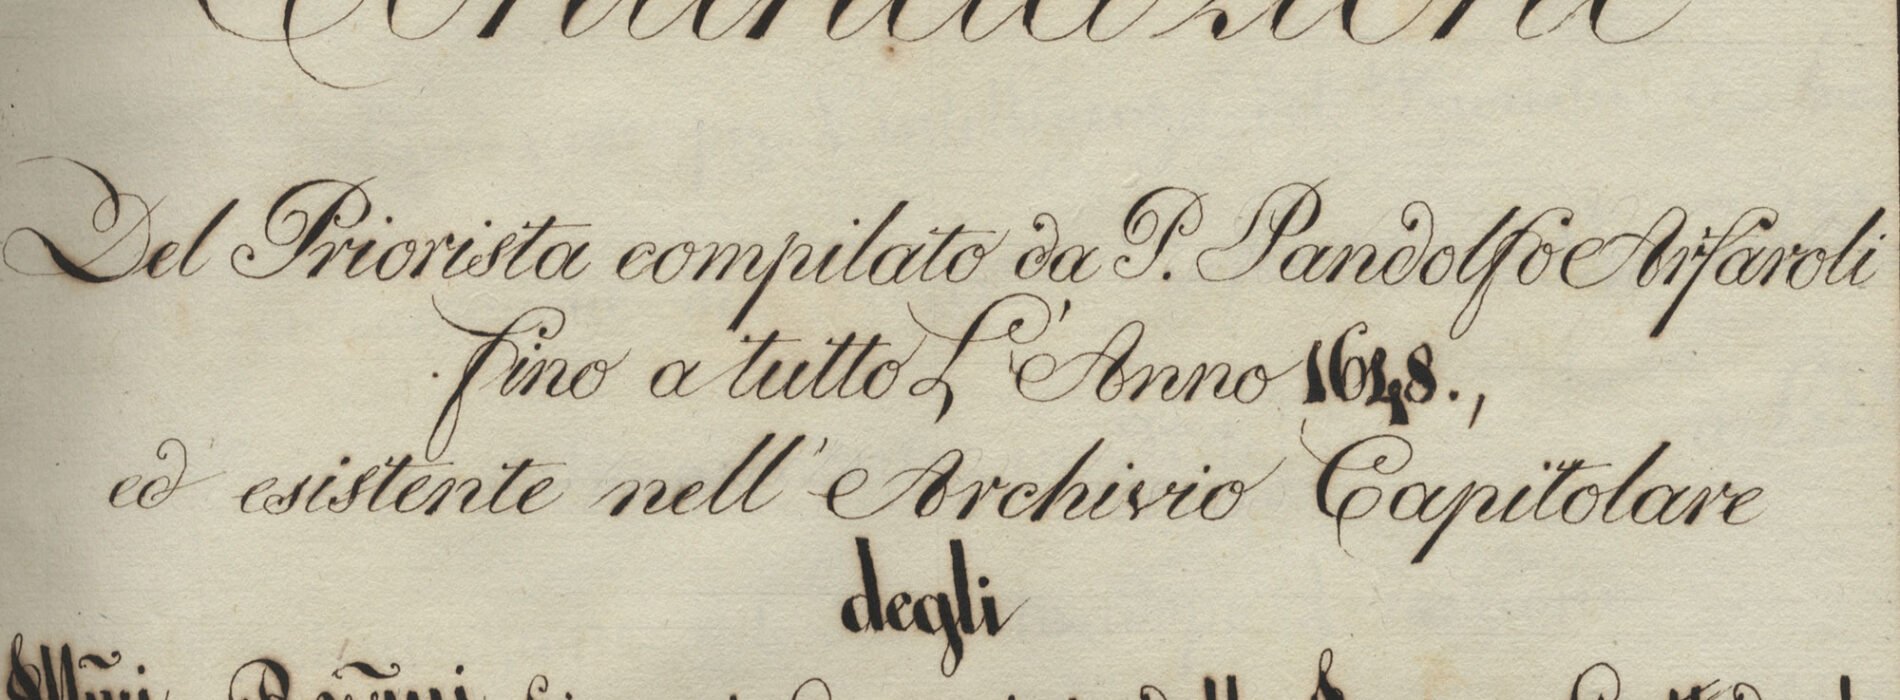 Del Priorista compilato da P. Pandolfo Arfaroli
fino a tutto L'Anno 1648.,
ed esistente nell'Archivio Capitolare
degli